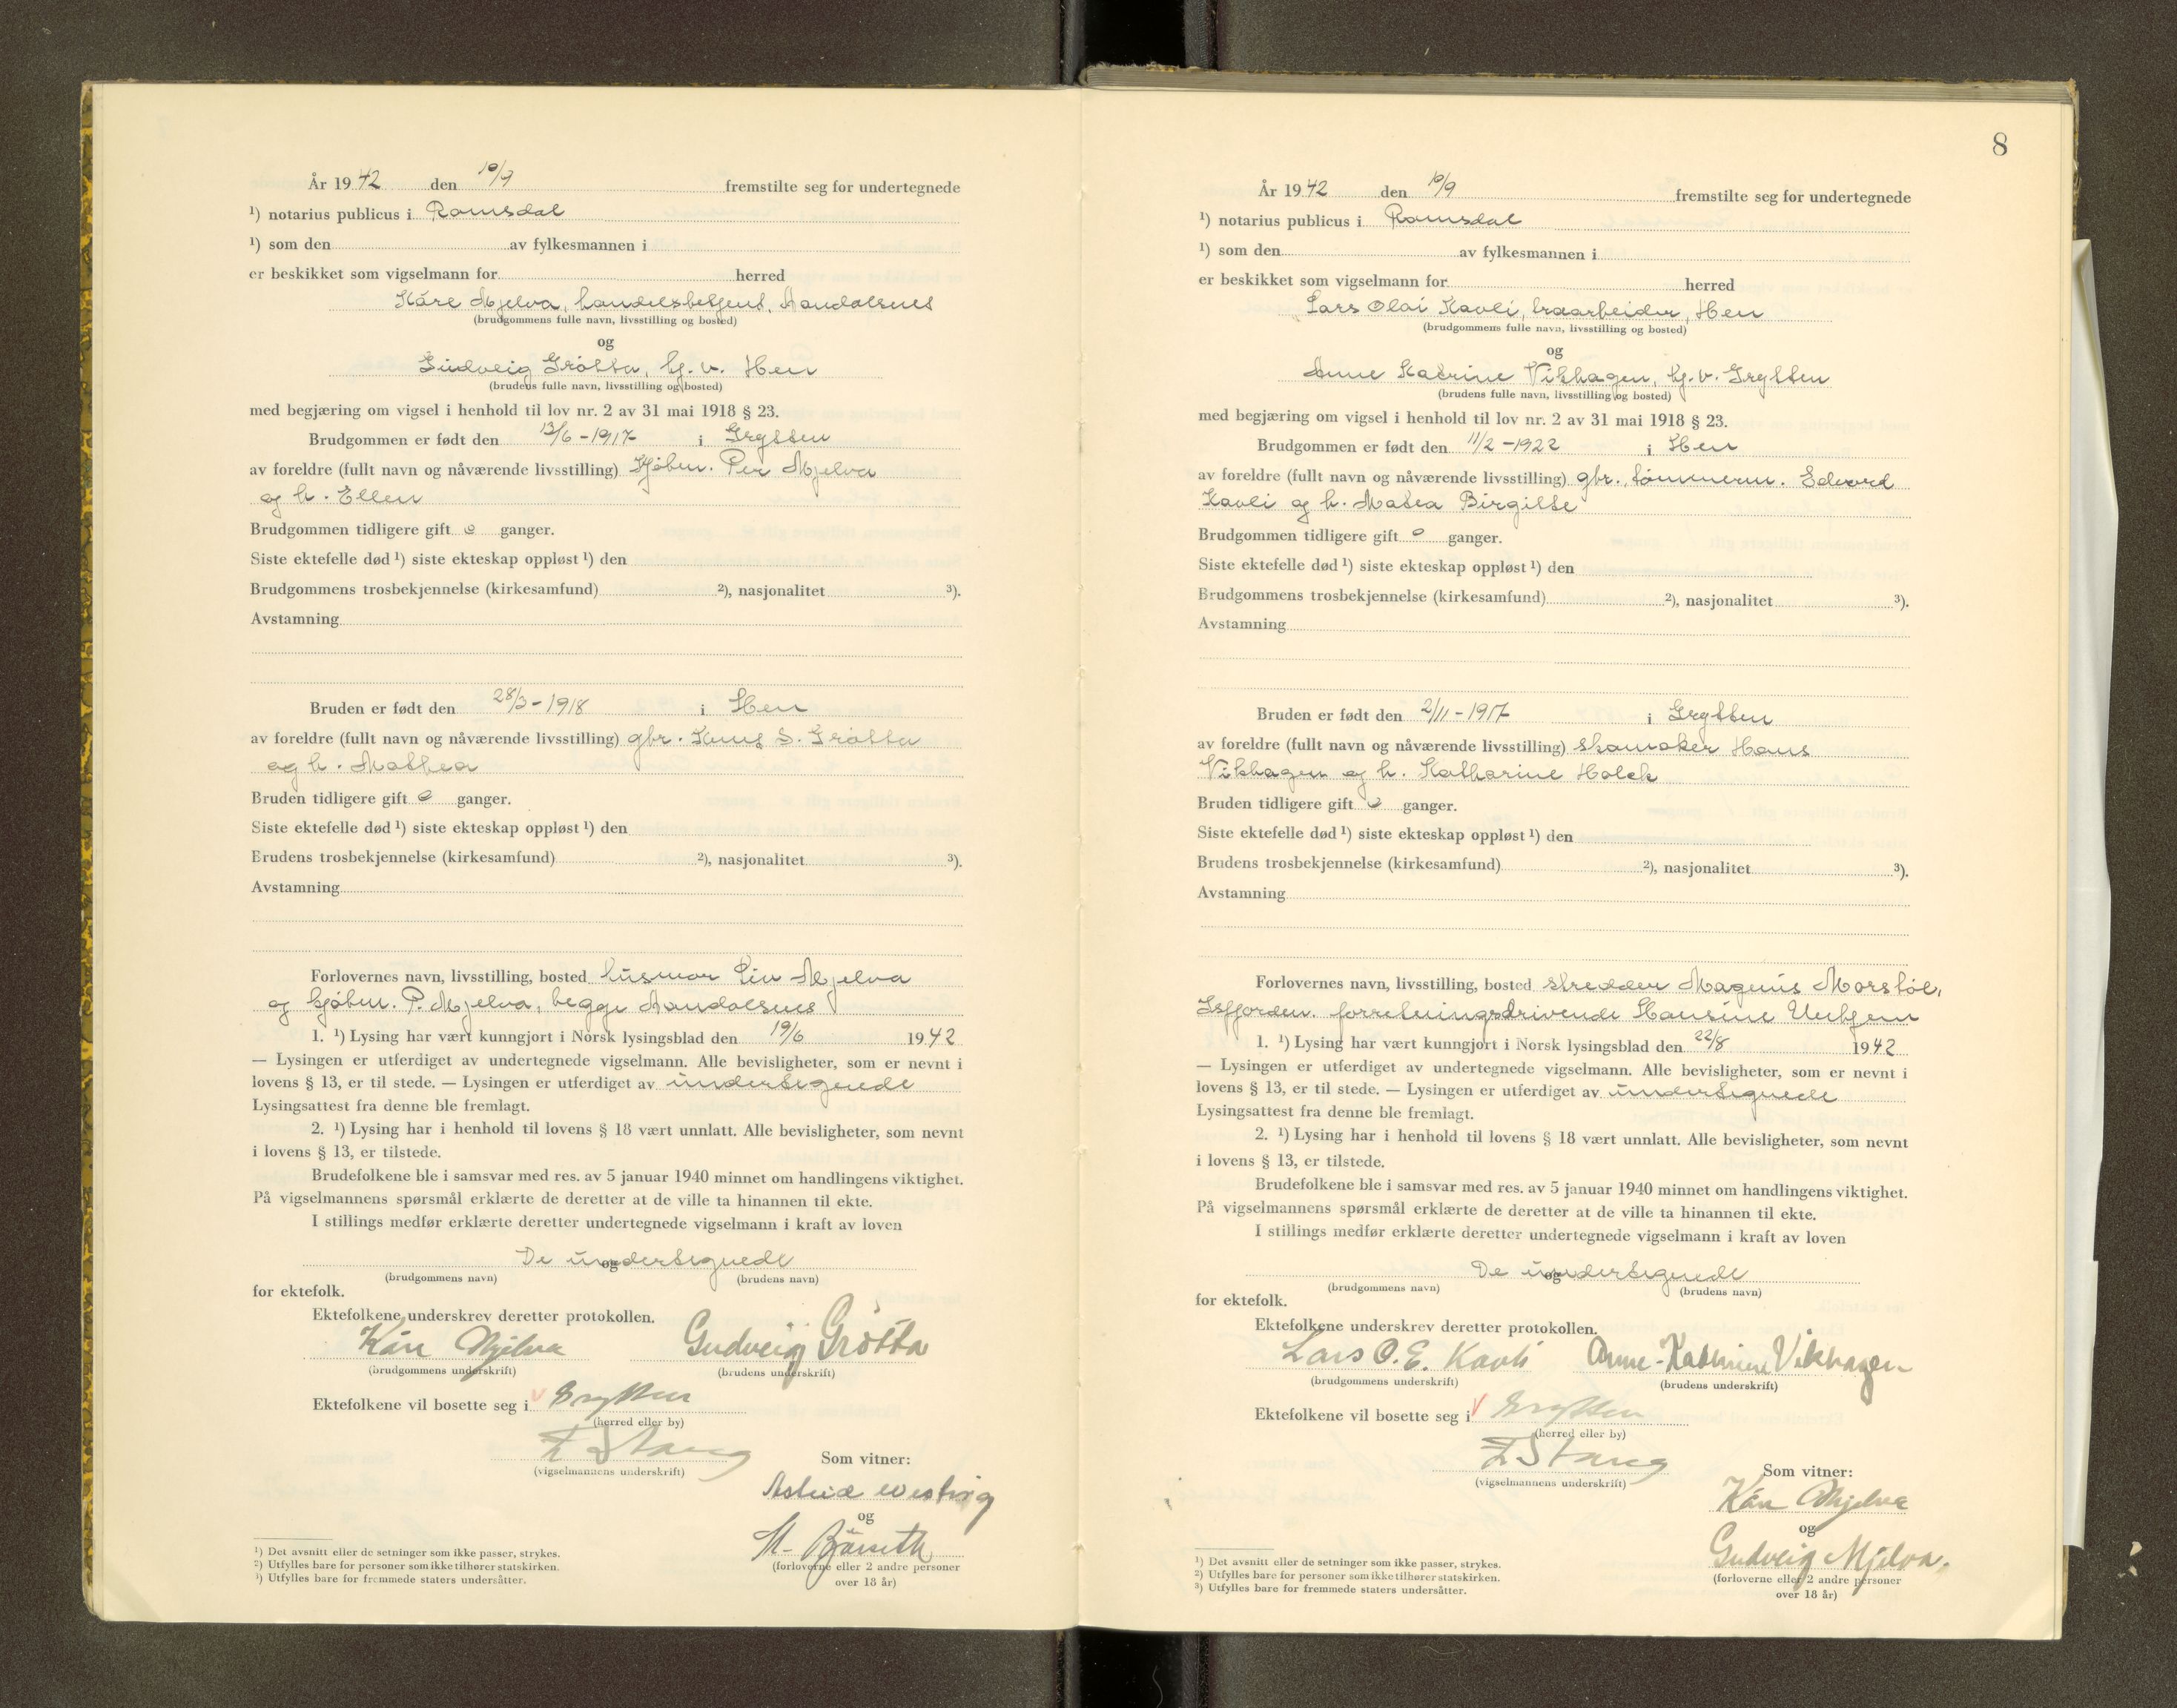 År 1942 den 10/9 fremstilte seg for undertegnede
¹) notarius publicus i Romsdal
¹) som den av fylkesmannen i
er beskikket som vigselmann for herred
Kåre Mjelva, handelsbetjent, Aandalsnes
(brudgommens fulle navn, livsstilling og bosted)
og
Gudveig Grötta, hj.v. Hen
(brudens fulle navn, livsstilling og bosted)
med begjæring om vigsel i henhold til lov nr. 2 av 31 mai 1918 § 23.
Brudgommen er født den 13/6-1917 i Grytten
av foreldre (fullt navn og nåværende livsstilling) Kjøbm. Per Mjelva
og h. Ellen
Brudgommen tidligere gift 0 ganger.
Siste ektefelle død ¹) siste ekteskap oppløst ¹) den
Brudgommens trosbekjennelse (kirkesamfund) ²), nasjonalitet ³).
Avstamning
Bruden er født den 28/3-1918 i Hen
av foreldre (fullt navn og nåværende livsstilling) gbr. S. Grötta
og h. Mathea
Bruden tidligere gift 0 ganger.
Siste ektefelle død ¹) siste ekteskap oppløst ¹) den
Brudens trosbekjennelse (kirkesamfund) ²), nasjonalitet ³).
Avstamning
Forlovernes navn, livsstilling, bosted husmor Liv Mjelva
og kjøbm. P. Mjelva, begge Aandalsnes
1. ¹) Lysing har vært kunngjort i Norsk lysingsblad den 19/6 1942
— Lysingen er utferdiget av undertegnede vigselmann. Alle bevisligheter, som er nevnt i
lovens § 13, er til stede. — Lysingen er utferdiget av undertegnede
Lysingsattest fra denne ble fremlagt.
2. ¹) Lysing har i henhold til lovens § 18 vært unnlatt. Alle bevisligheter, som nevnt
i lovens § 13, er tilstede.
Brudefolkene ble i samsvar med res. av 5 januar 1940 minnet om handlingens viktighet.
På vigselmannens spørsmål erklærte de deretter at de ville ta hinannen til ekte.
I stillings medfør erklærte deretter undertegnede vigselmann i kraft av loven
De undertegnede
og
(brudgommens navn) (brudens navn)
for ektefolk.
Ektefolkene underskrev deretter protokollen.
Kåre Mjelva Gudveig Grötta
(brudgommens underskrift) (brudens underskrift)
Ektefolkene vil bosette seg i V Grytten
(herred eller by)
E Stang
(vigselmannens underskrift)
Som vitner:
Astrid
og
M.
(forloverne eller 2 andre personer
over 18 år)
¹) Det avsnitt eller de setninger som ikke passer, strykes.
²) Utfylles bare for personer som ikke tilhører statskirken.
³) Utfylles bare for fremmede staters undersåtter.
8
År 1942 den 10/9 fremstilte seg for undertegnede
¹) notarius publicus i Romsdal
¹) som den av fylkesmannen i
er beskikket som vigselmann for herred
Lars Olai Kavli, traarbeider, Hen
(brudgommens fulle navn, livsstilling og bosted)
og
Anne Katrine Vikhagen, hj.v. Grytten
(brudens fulle navn, livsstilling og bosted)
med begjæring om vigsel i henhold til lov nr. 2 av 31 mai 1918 § 23.
Brudgommen er født den 11/2-1922 i Hen
av foreldre (fullt navn og nåværende livsstilling) gbr., tömmerm. Edvard
Kavli og h. Matea Birgitte
Brudgommen tidligere gift 0 ganger.
Siste ektefelle død ¹) siste ekteskap oppløst ¹) den
Brudgommens trosbekjennelse (kirkesamfund) ²), nasjonalitet ³).
Avstamning
Bruden er født den 2/11-1917 i Grytten
av foreldre (fullt navn og nåværende livsstilling) skomaker Hans
Vikhagen og h. Katharine Holck
Bruden tidligere gift 0 ganger.
Siste ektefelle død ¹) siste ekteskap oppløst ¹) den
Brudens trosbekjennelse (kirkesamfund) ²), nasjonalitet ³).
Avstamning
Forlovernes navn, livsstilling, bosted skredder Magnus Morstöl,
Isfjorden. forretningsdrivende Hansine Unhjem
1. ¹) Lysing har vært kunngjort i Norsk lysingsblad den 22/8 1942
— Lysingen er utferdiget av undertegnede vigselmann. Alle bevisligheter, som er nevnt i
lovens § 13, er til stede. — Lysingen er utferdiget av undertegnede
Lysingsattest fra denne ble fremlagt.
2. ¹) Lysing har i henhold til lovens § 18 vært unnlatt. Alle bevisligheter, som nevnt
i lovens § 13, er tilstede.
Brudefolkene ble i samsvar med res. av 5 januar 1940 minnet om handlingens viktighet.
På vigselmannens spørsmål erklærte de deretter at de ville ta hinannen til ekte.
I stillings medfør erklærte deretter undertegnede vigselmann i kraft av loven
De undertegnede
og
(brudgommens navn) (brudens navn)
for ektefolk.
Ektefolkene underskrev deretter protokollen.
Lars O. E. Kavli Anne-Kathrine Vikhagen
(brudgommens underskrift) (brudens underskrift)
Ektefolkene vil bosette seg i V Grytten
(herred eller by)
E Stang
(vigselmannens underskrift)
Som vitner:
Kåre Mjelva
og
Gudveig Mjelva.
(forloverne eller 2 andre personer
over 18 år)
¹) Det avsnitt eller de setninger som ikke passer, strykes.
²) Utfylles bare for personer som ikke tilhører statskirken.
³) Utfylles bare for fremmede staters undersåtter.